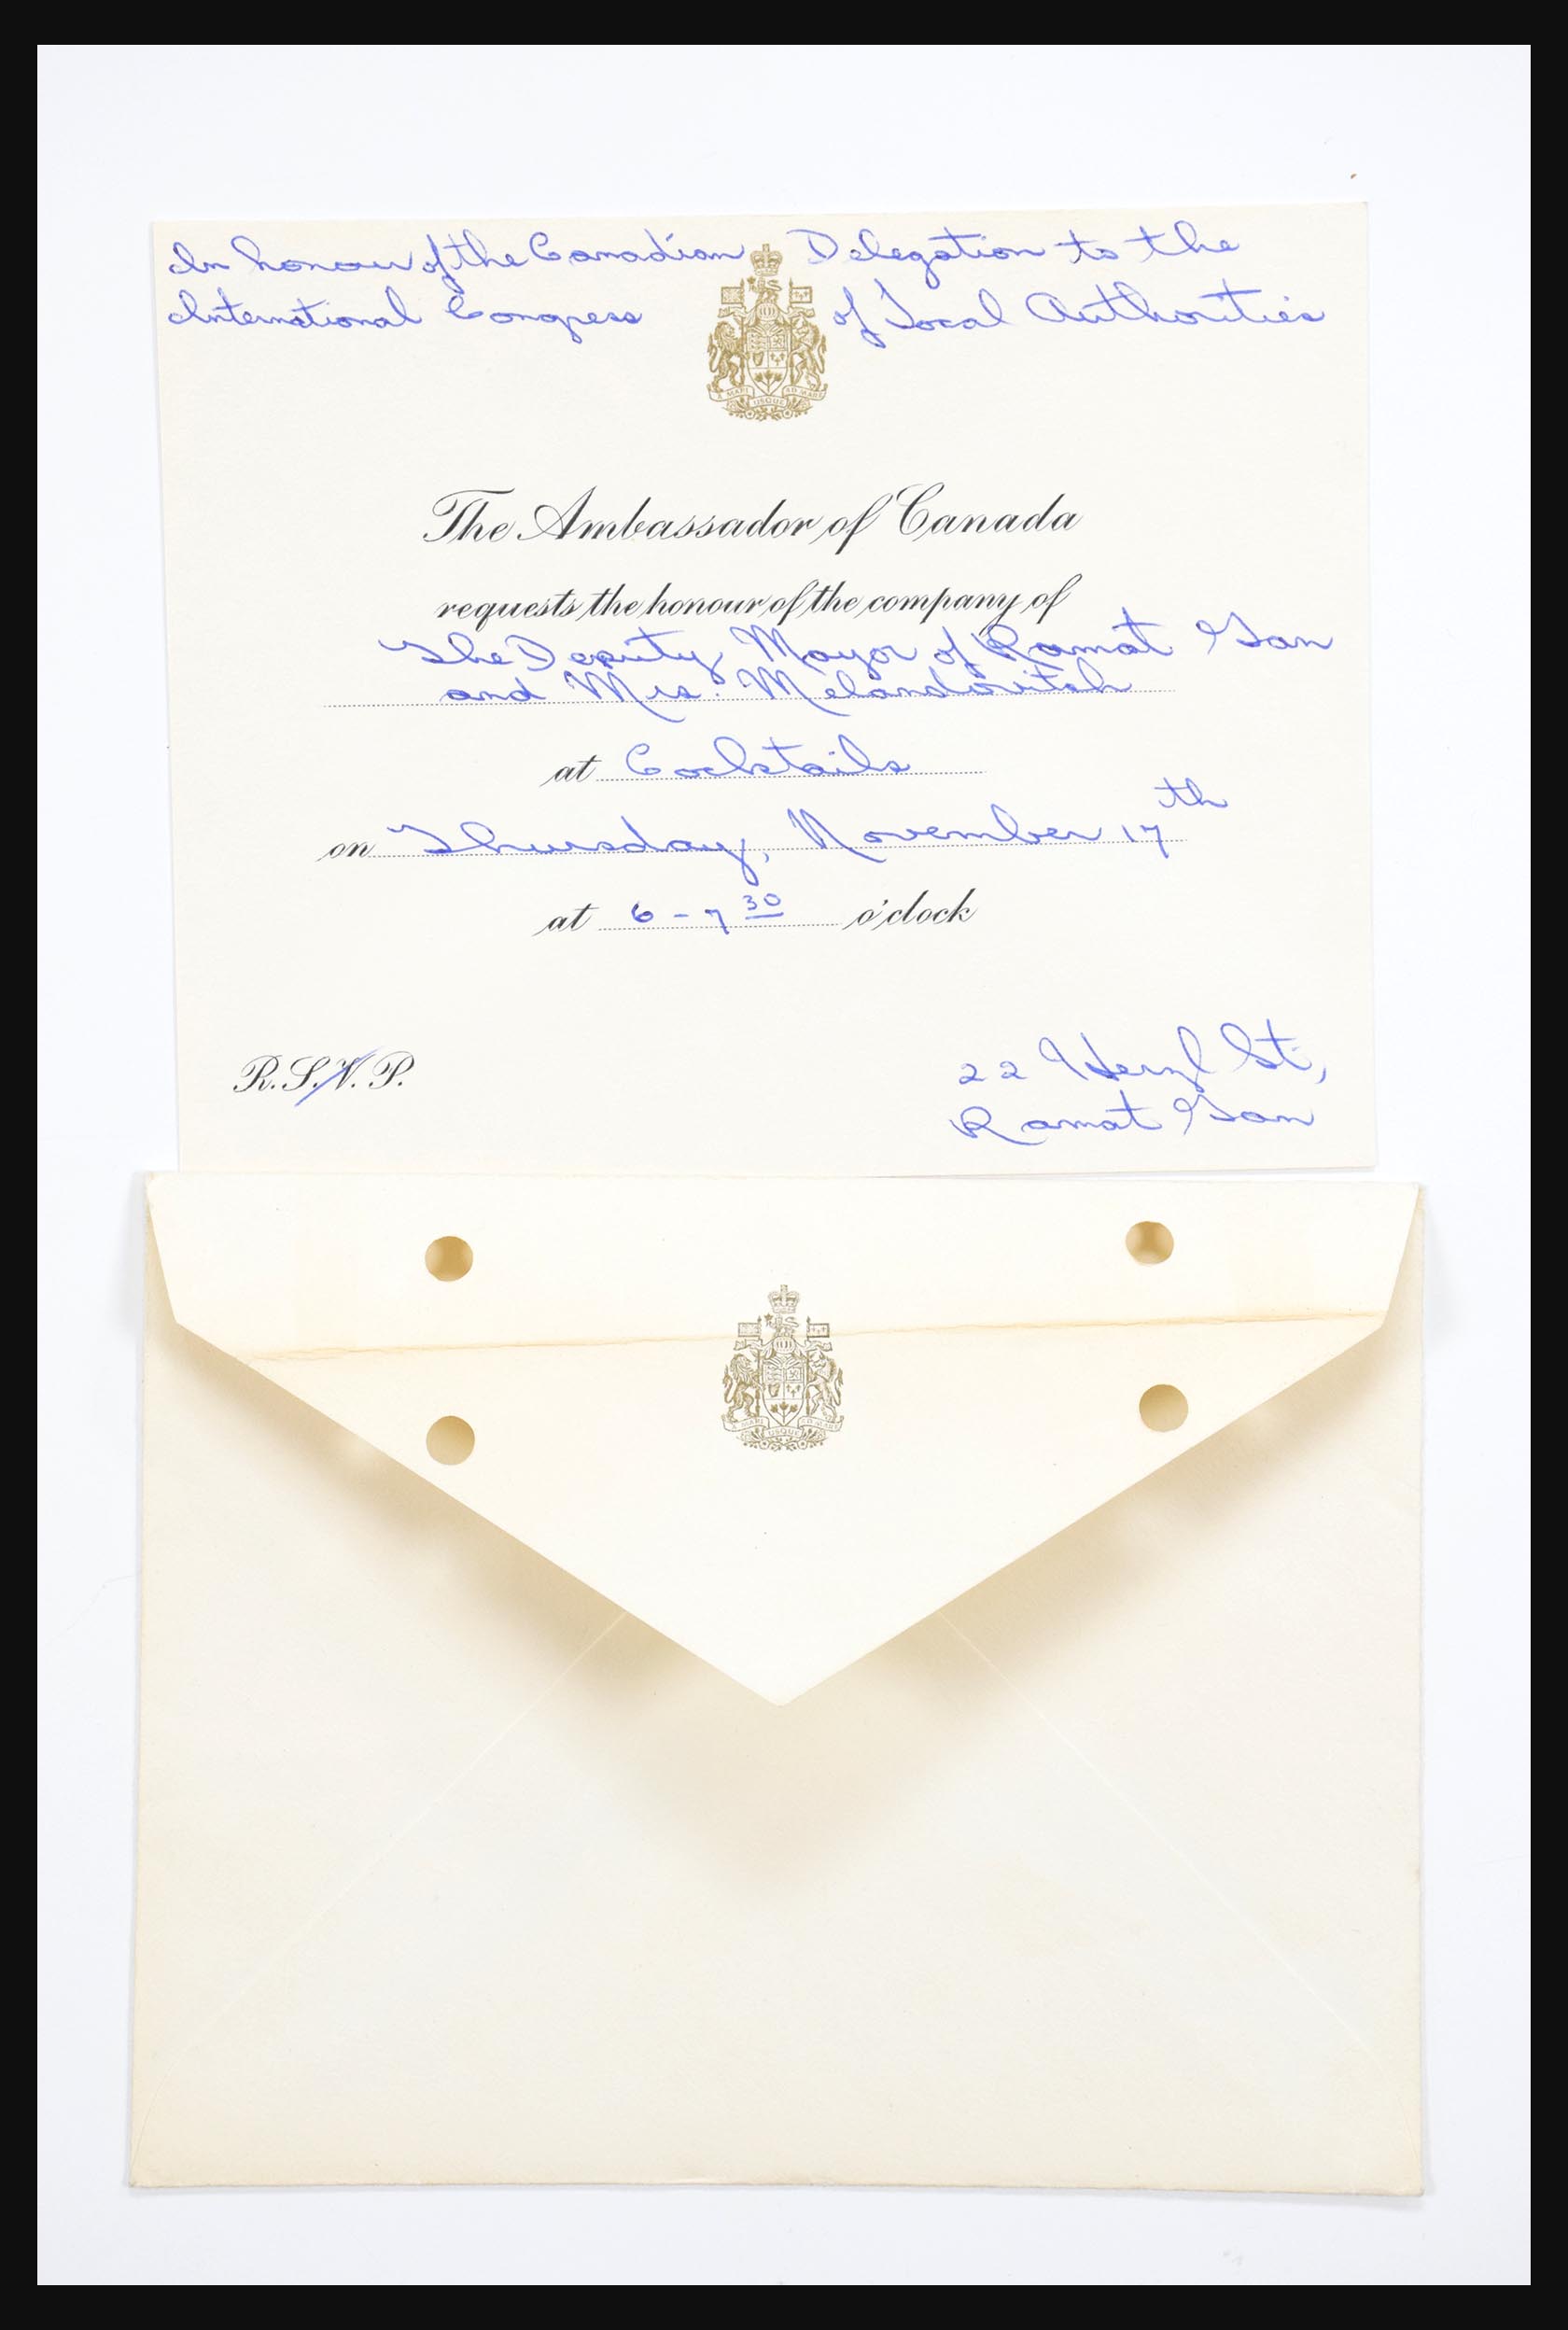 In honour of the Canadian Delegation to the
International Congress of Local Authorities
A MARI USQUE AD MARE
The Ambassador of Canada
requests the honour of the company of
The Deputy Mayor of Ramat Gan
and Mrs. Melandovitch
at Cocktails
on Thursday, November 17th
at 6 - 7 30 o'clock
R.S.V.P.
22 Herzl St.,
Ramat Gan
A MARI USQUE AD MARE